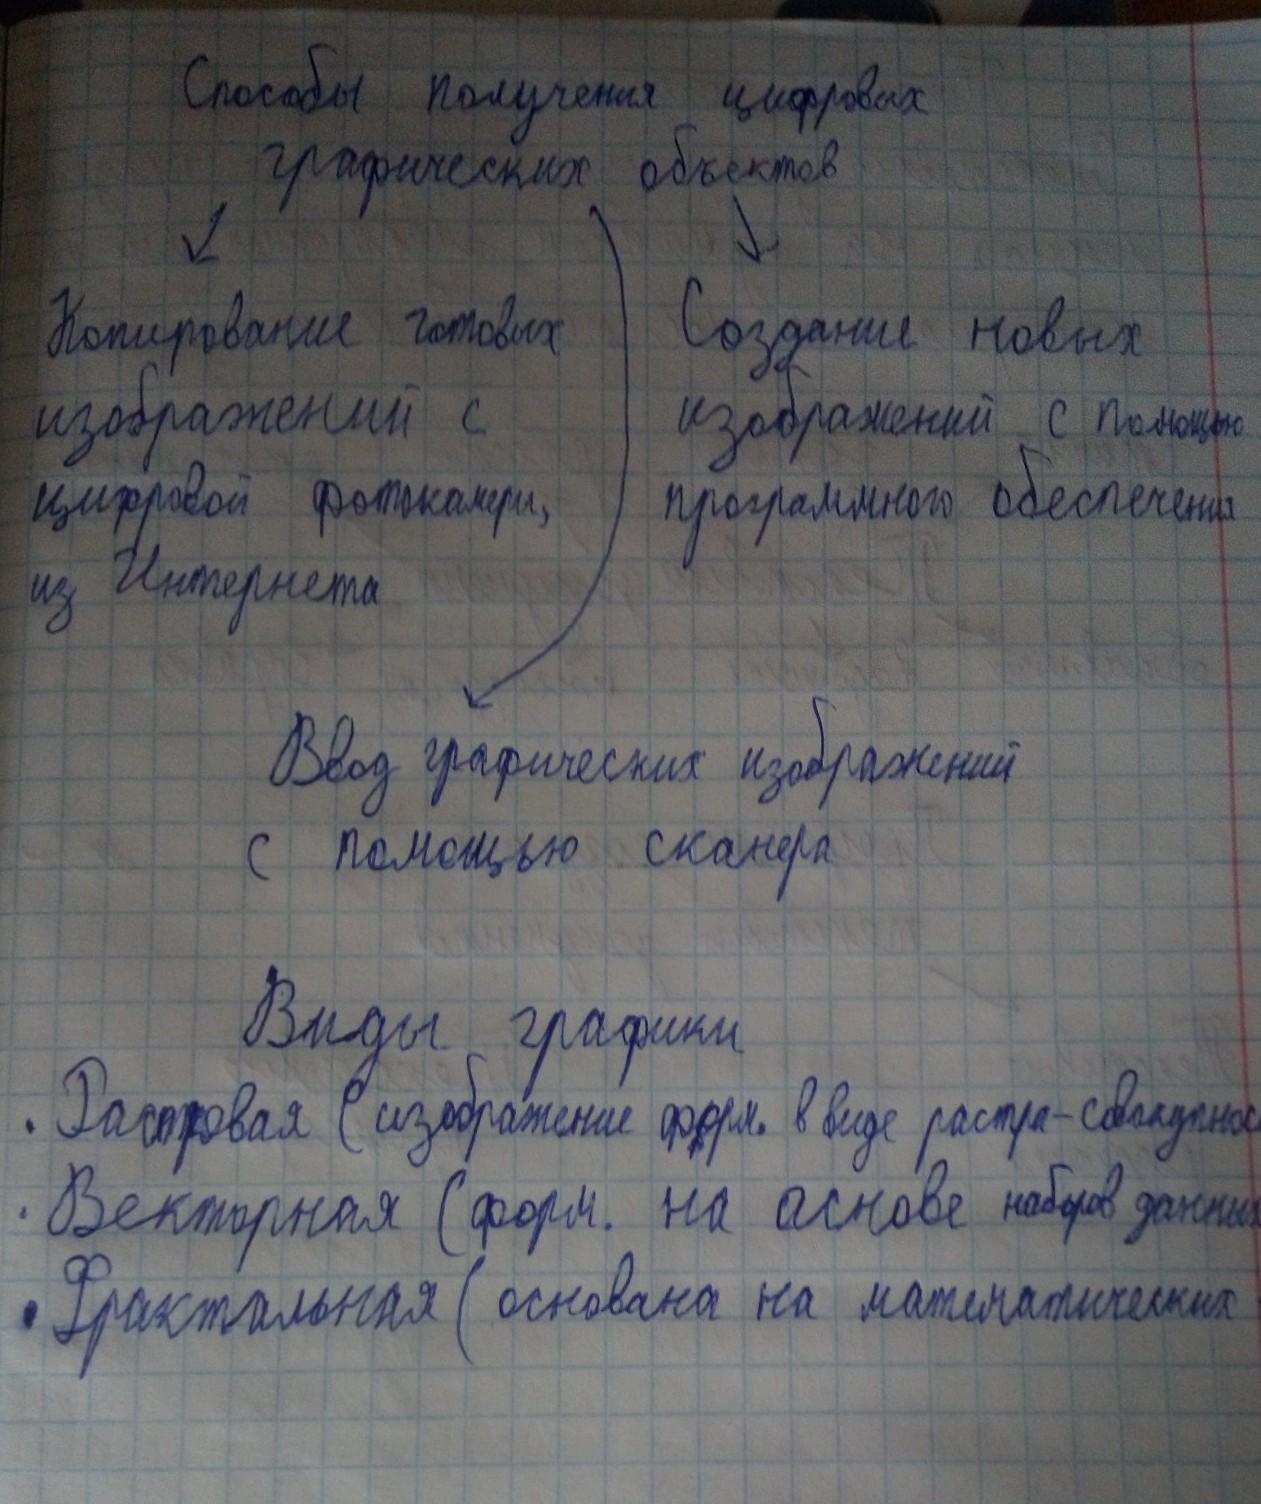 Способы получения цифровых
графических объектов
Копирование готовых
изображений с
цифровой фотокамеры,
из Интернета
Создание новых
изображений с помощью
программного обеспечения
Ввод графических изображений
с помощью сканера
Виды графики
• Растровая (изображение форм. в виде растра - совокупнос
• Векторная (форм. на основе наборов данных
• Фрактальная (основана на математических